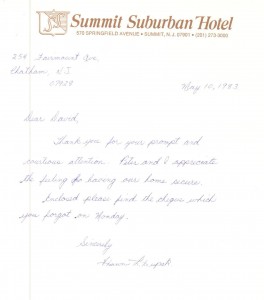 Summit Suburban Hotel
570 SPRINGFIELD AVENUE • SUMMIT, N.J. 07901 • (201) 273-3000
254 Fairmount Ave
Chatham, N.J.
07928
May 10, 1983
Dear David,
Thank you for your prompt and
courteous attention. Peter and I appreciate
the feeling of having our home secure.
Enclosed please find the cheque which
you forgot on Monday.
Sincerely